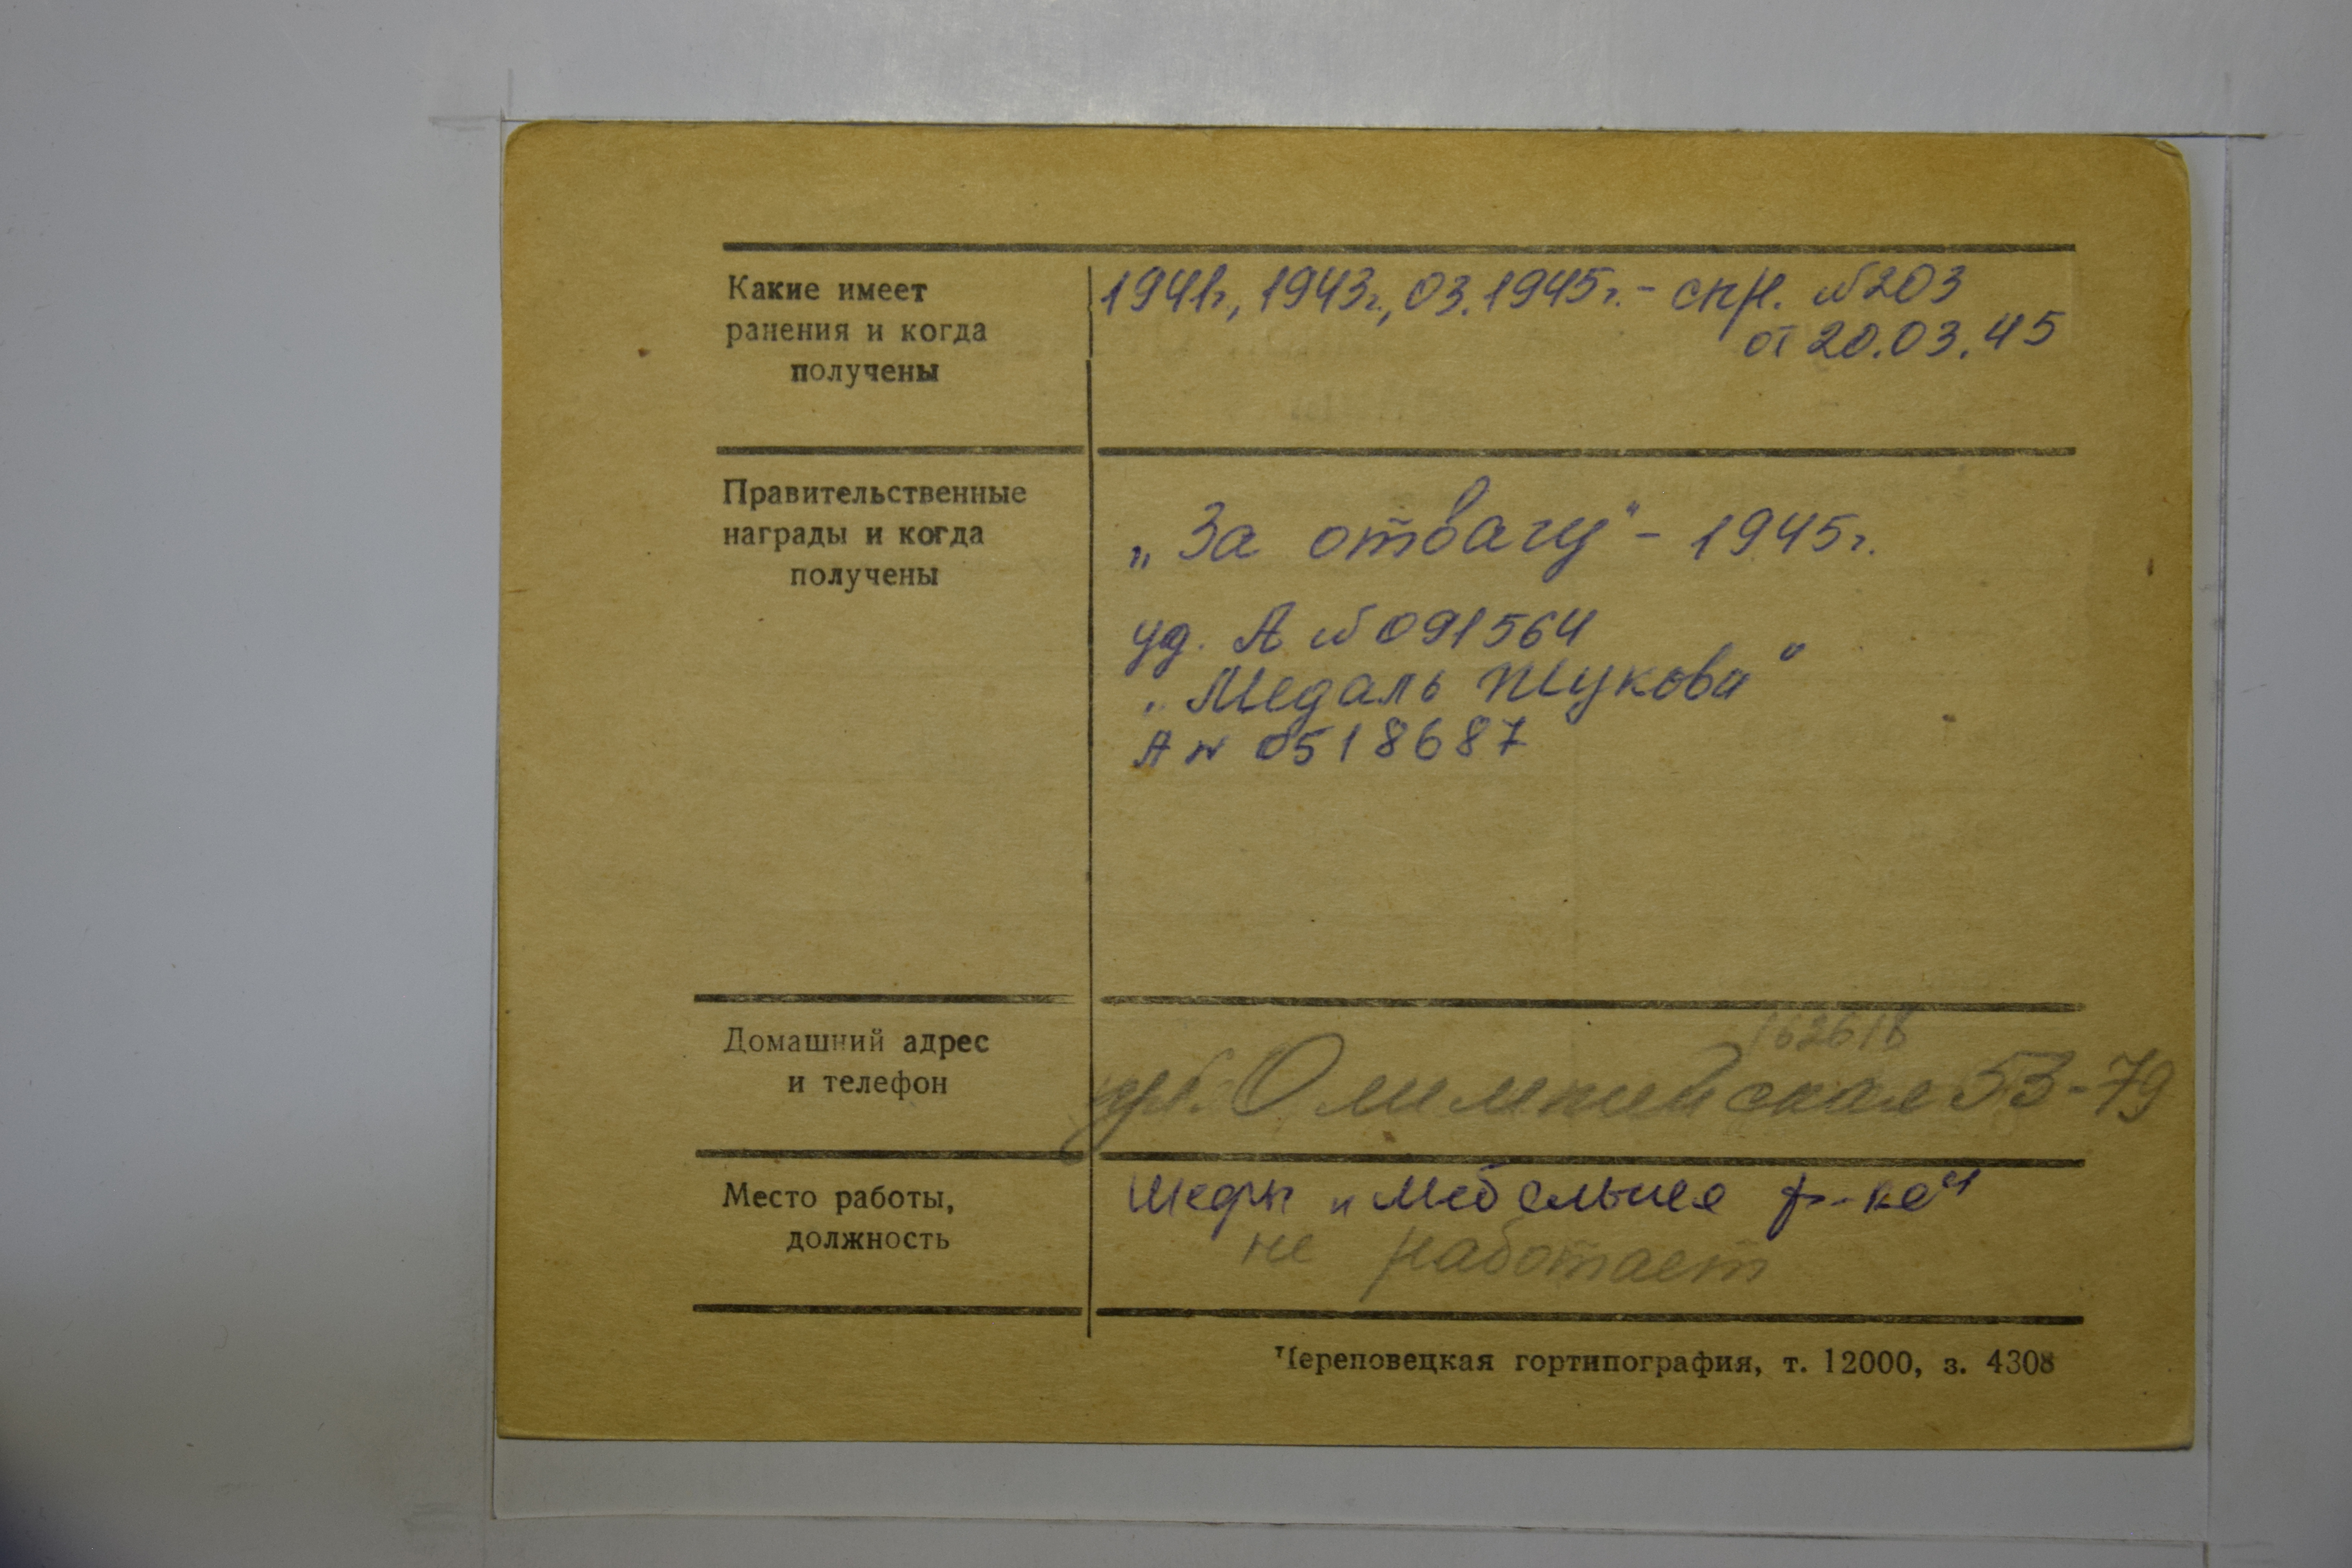 Какие имеет
ранения и когда
получены
1941г., 1943г., 03.1945г. - спр. №203
от 20.03.45
Правительственные
награды и когда
получены
„За отвагу" - 1945г.
уд. А №091564
„Медаль Жукова"
А № 0518687
Домашний адрес
и телефон
162616
ул. Олимпийская 53-79
Место работы,
должность
Шефы „Мебельная ф-ка"
не работает
Череповецкая гортипография, т. 12000, з. 4308